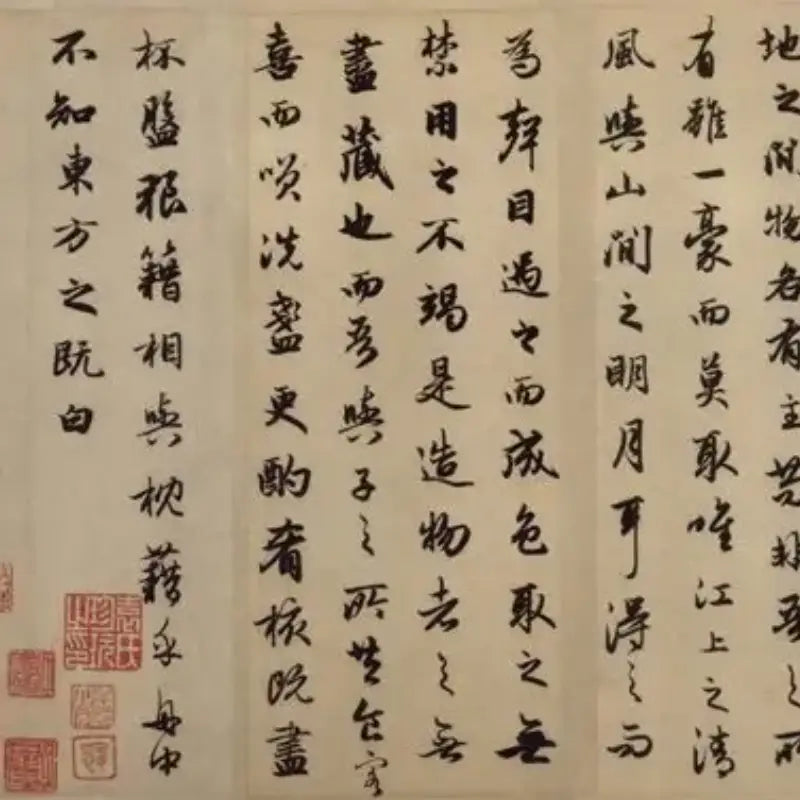 地之間物各有主苟非吾之所
有雖一豪而莫取唯江上之清
風與山間之明月耳得之而
為聲目遇之而成色取之無
禁用之不竭是造物者之無
盡藏也而吾與子之所共食客
喜而笑洗盞更酌肴核既盡
杯盤狼籍相與枕藉乎舟中
不知東方之既白